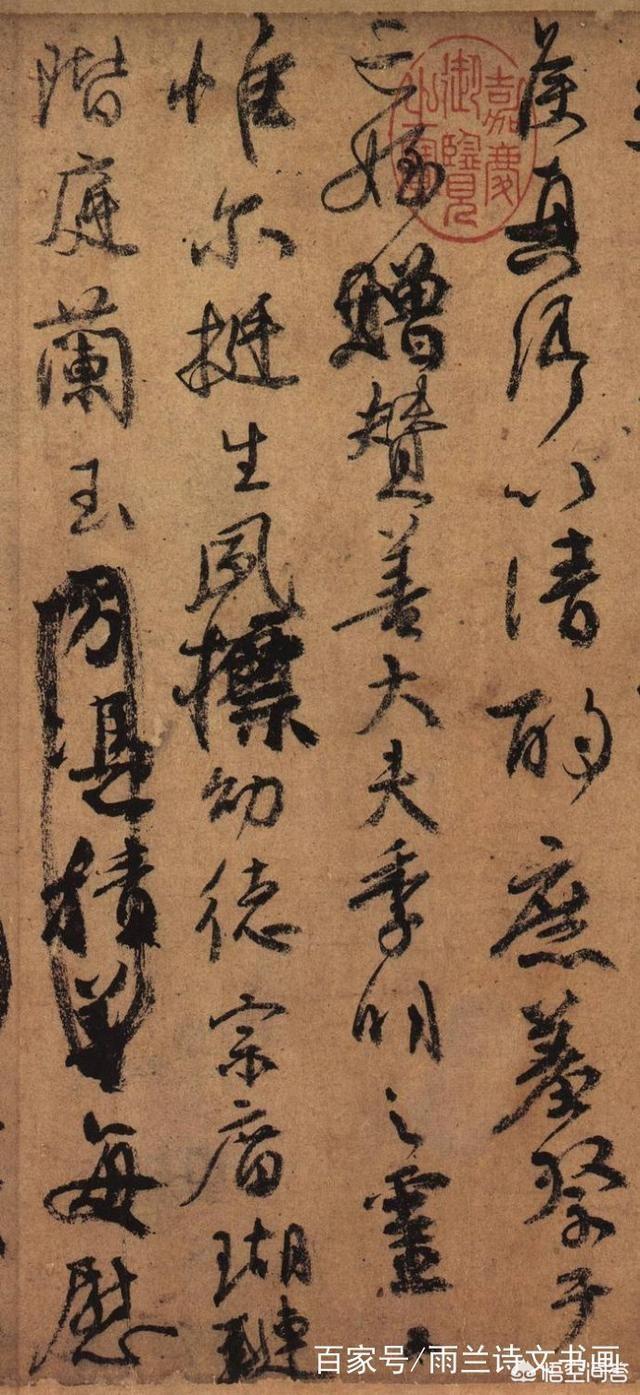 侯真卿以清酌庶羞祭于
亡姪贈贊善大夫季明之靈曰
惟尔挺生夙標幼德宗庿瑚璉
階庭蘭玉方憑積善每慰
嘉慶御覽之寶
百家号/雨兰诗文书画
悟空问答